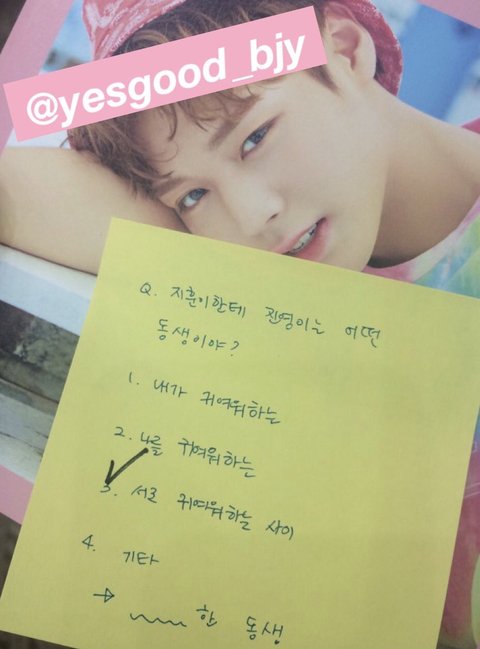 @yesgood_bjy
Q. 지훈이한테 진영이는 어떤
동생이야?
1. 내가 귀여워하는
2. 나를 귀여워하는
3. 서로 귀여워하는 사이
4. 기타
→ ~~~ 한 동생